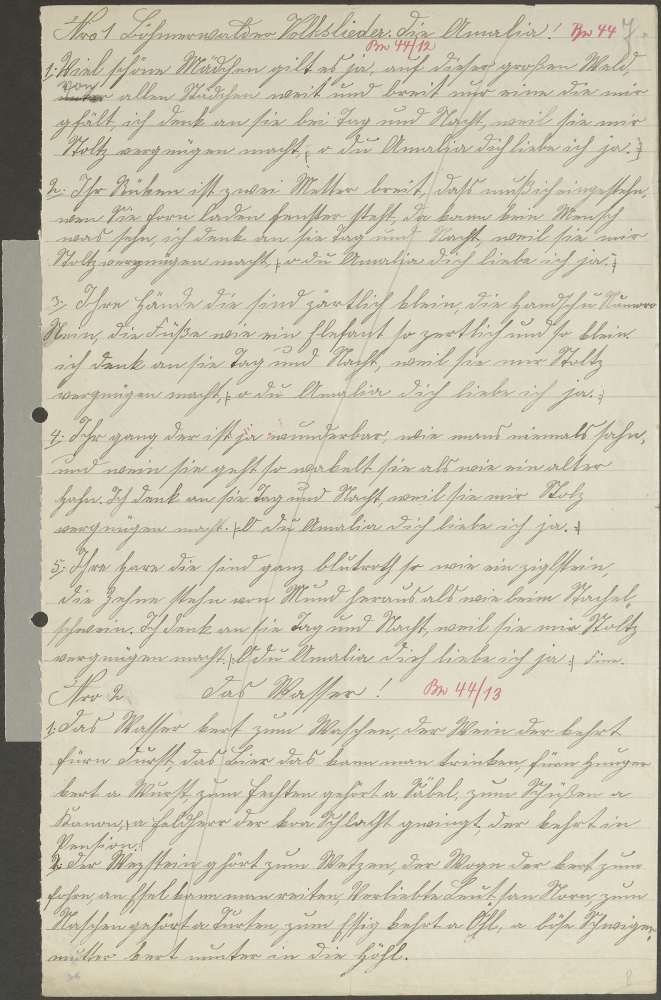 Nro 1 Böhmerwalder Volkslieder. Die Amalia! Bw 44 7.
Bw 44/12
1: Viel schöne Mädchen gilt es ja, auf dieser großen Weld,
von allen Mädchen weit und breit mir eine die mir
gfält, ich denk an sie bei Tag und Nacht, weil sie mir
Stoltz vergnügen macht, |: o du Amalia dich liebe ich ja. :|
2: Ihr Rüken ist zwei Metter breit, dass muß ich eingestehn,
wen sie forn laden fenster steht, da kann kein Mensch
was sehn, ich denk an sie Tag und Nacht, weil sie mir
Stoltz vergnügen macht, |: o du Amalia dich liebe ich ja; :|
3: Ihre Hände die sind zärtlich klein, die Handschu Numero
Nein, die Füße wie ein Elefant so zertlich und so klein.
ich denk an sie Tag und Nacht, weil sie mir Stoltz
vergnügen macht, |: o du Amalia dich liebe ich ja. :|
4: Ihr gang der ist ja wunderbar, wie mans niemals sahn,
und wein sie geht so wakelt sie als wie ein alter
hahn. Ich denk an sie Tag und Nacht, weil sie mir Stolz
vergnügen macht. |: O du Amalia dich liebe ich ja. :|
5: Ihre hare die sind ganz blutroth so wie ein ziglstein,
die Zehne stehn von Mund heraus als wie beim Stachel„
schwein. Ich denk an sie Tag und Nacht, weil sie mir Stoltz
vergnügen macht. |: O du Amalia dich liebe ich ja :| Fine.
Nro 2. Das Wasser! Bw 44/13
1: Das Wasser kert zum Waschen, der Wein der kehrt
fürn Durst, das Bier das kann man trinken, fürn Hunger
kert a Wurst, zum fechten gehört a Säbel, zum Schüßen a
Kanon, |: a Feldherr der koa Schlacht gwingt, der kehrt in
Pension. :|
2. Der Wezstein ghört zum Wetzen, der Wogn der kert zum
fohrn, an Esel kann man reiten, Verliebte Leut san Norn, zum
Naschen gehört a Turten, zum Essig kehrt a Öhl, a böse Schwiger„
mutter kert munter in die Höhl.
8